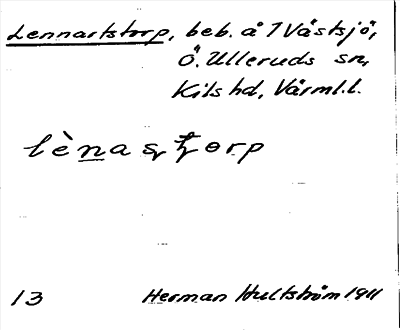 Lennartstorp, beb. å 7 Västsjö,
Ö. Ulleruds sn,
Kils hd, Värml. l.
lènaștorp
13 Herman Hultström 1911